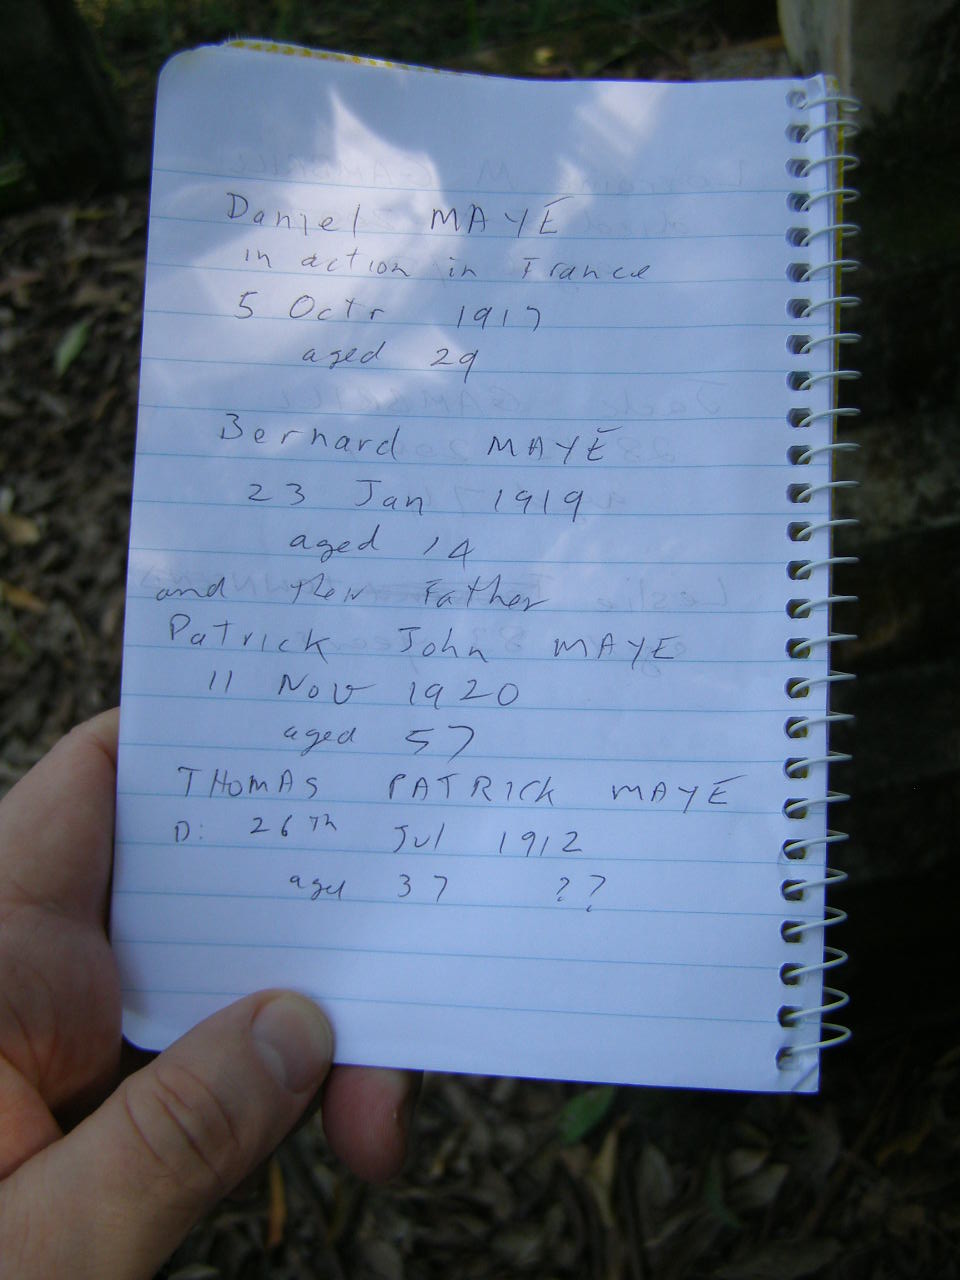 Daniel MAYE
in action in France
5 Octr 1917
aged 29
Bernard MAYE
23 Jan 1919
aged 14
and their Father
Patrick John MAYE
11 Nov 1920
aged 57
THOMAS PATRICK MAYE
D: 26Th Jul 1912
aged 37 ??